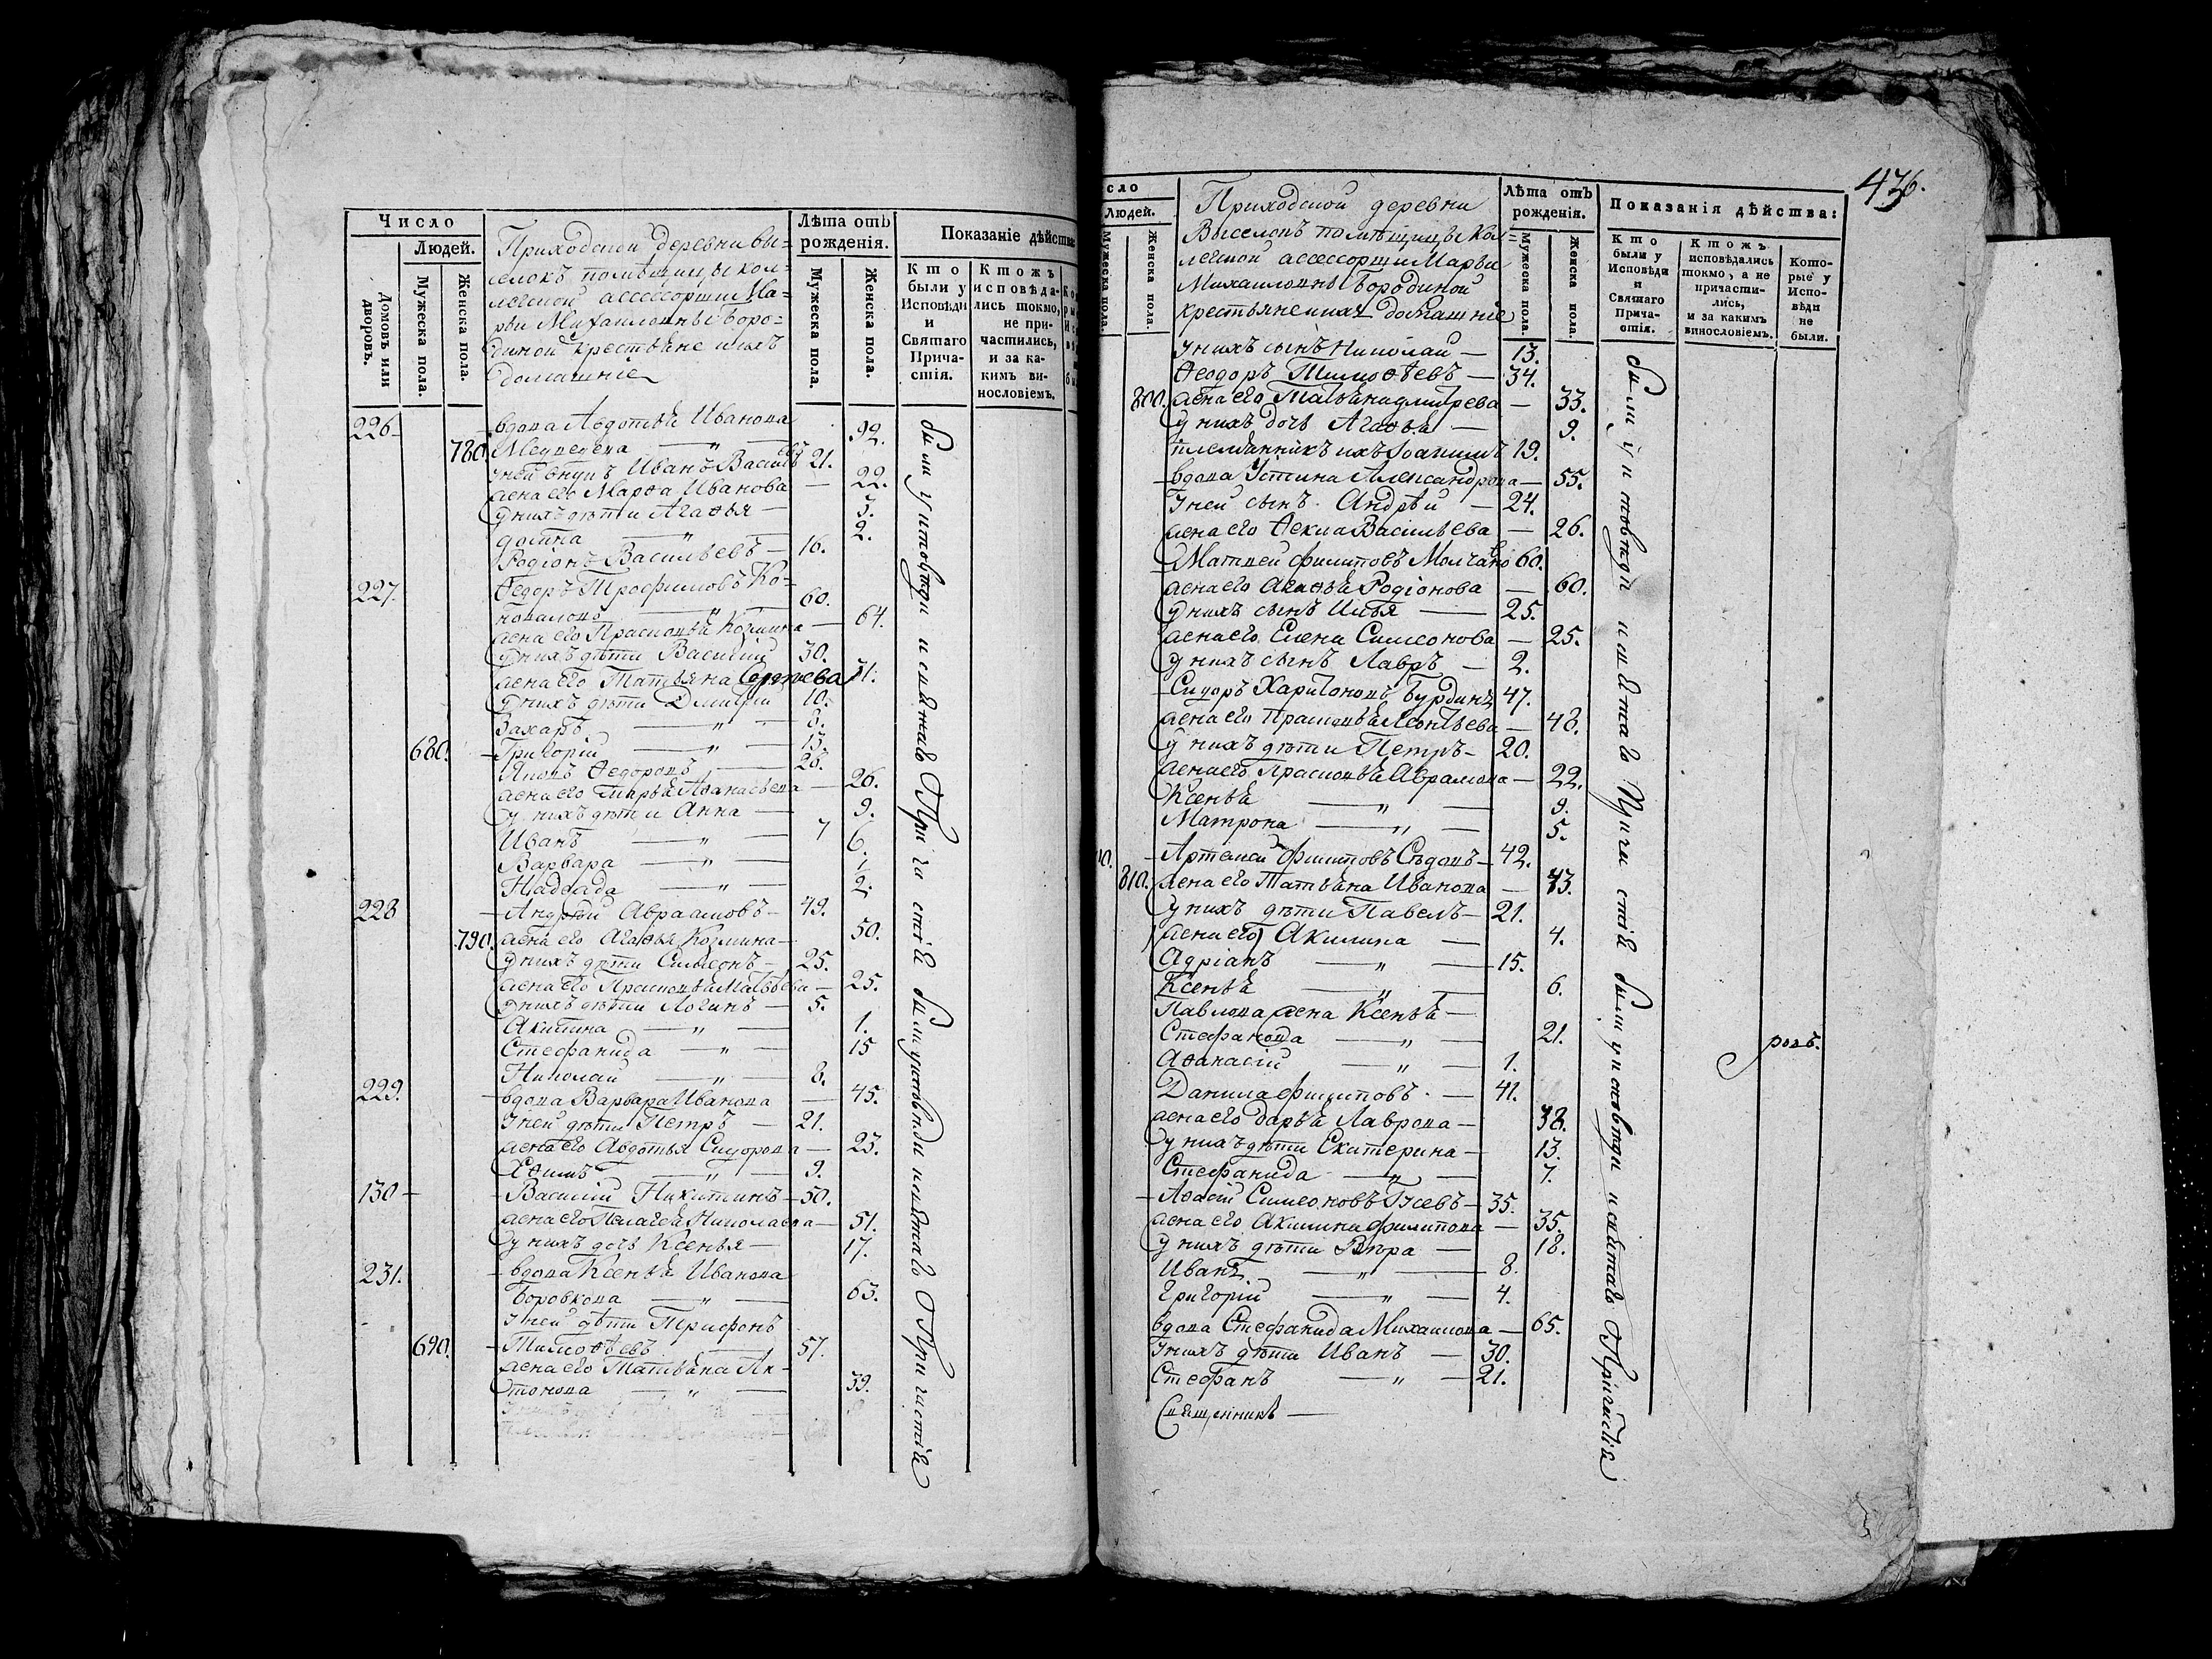 Число
Людей.
Домовъ или дворовъ.
Мужеска пола.
Женска пола.
Приходской деревни вы=
селокъ помѣщицы кол=
лежской ассессорши Ма=
рьи Михаиловны Боро=
диной крестьяне и ихъ
домашніе
Лѣта отъ рожденія.
Мужеска пола.
Женска пола.
Показаніе дѣйства:
Кто были у Исповѣди и Святаго Причастія.
Ктожъ исповѣдались токмо, не причастились, и за какимъ винословіемъ.
226 вдова Авдотья Иванова
780. Медведева — „ — 92.
у ней внукъ Иванъ Васильевъ 21.
жена его Марѳа Иванова — 22.
у нихъ дѣти Агаѳья — 3.
Домна — „ — 2.
Родіонъ Васильевъ — 16.
227. Ѳедоръ Трофимовъ Ко=
новаловъ — „ — 60.
жена его Прасковья Козмина — 64.
у нихъ дѣти Василій 30.
жена его Татьяна Сергѣева 31.
у нихъ дѣти Дмитрій 10.
Захаръ — „ — 8.
680. Григорій — „ — 15.
Яковъ Ѳедоровъ — 26.
жена его Марья Аѳанасьева — 26.
у нихъ дѣти Анна — 9.
Иванъ — „ — 7
Варвара — „ — 6.
Надежда — „ — 2.
228 Андрей Авраамовъ — 49.
790. жена его Агаѳья Козмина — 50.
у нихъ дѣти Симеонъ — 25.
жена его Прасковья Матвѣева — 25.
у нихъ дѣти Логинъ — 5.
Акилина — „ — 1.
Стефанида — „ — 15
Николай — „ — 8.
229. вдова Варвара Иванова — 45.
у ней дѣти Петръ — 21.
жена его Авдотья Сидорова — 23.
Ефимъ — „ — 9.
130 — Василій Никитинъ — 50.
жена его Пелагея Николаева — 51.
у нихъ дочь Ксенья — 17.
231. вдова Ксенья Иванова
Боровкова — „ — 63.
у ней дѣти Трифонъ
690. Тимоѳеевъ — 57.
жена его Татьяна Ан=
тонова — „ — 39.
были у исповѣди и святаго Причастія были у исповѣди и святаго Причастія
436.
сло
Людей.
Мужеска пола.
Женска пола.
Приходской деревни
Выселокъ помѣщицы Кол=
лежской ассессорши Марьи
Михаиловны Бородиной
крестьяне и ихъ домашніе
Лѣта отъ рожденія.
Мужеска пола.
Женска пола.
Показанія дѣйства:
Кто были у Исповѣди и Святаго Причастія.
Ктожъ исповѣдались токмо, а не причастились, и за какимъ винословіемъ.
Которые у Исповѣди не были.
у нихъ сынъ Николай — 13.
Ѳеодоръ Тимоѳѣевъ — 34.
800. жена его Татьяна Дмитрева — 33.
у нихъ дочь Агаѳья — 9.
племянникъ ихъ Іоакимъ 19.
вдова Устина Александрова — 55.
у ней сынъ Андрѣй — 24.
жена его Ѳекла Васильева — 26.
Матвей Филиповъ Молчановъ 60.
жена его Агаѳья Родіонова — 60.
у нихъ сынъ Илья — 25.
жена его Елена Симеонова — 25.
у нихъ сынъ Лавръ — 2.
Сидоръ Харитоновъ Бурдинъ 47.
жена его Прасковья Леонтьева — 48.
у нихъ дѣти Петръ — 20.
жена его Прасковья Аврамова — 22.
Ксенья — „ — 9.
Матрона — „ — 5.
Артемей Филиповъ Сѣдовъ — 42.
810. жена его Татьяна Иванова — 43.
у нихъ дѣти Павелъ — 21.
(жена его) Акилина — 4.
Адріанъ — „ — 15.
Ксенья — „ — 6.
Павлова жена Ксенья —
Стефанова — „ — 21.
Аѳанасій — „ — 1.
Данила Филиповъ — 41.
жена его Дарья Лаврова — 38.
у нихъ дѣти Екатерина — 13.
Стефанида — „ — 7.
Симеоновъ Гусевъ — 35.
жена его Акилина Филипова — 35.
у нихъ дѣти Вѣра — 18.
Иванъ — „ — 8.
Григорій — „ — 4.
вдова Стефанида Михаилова — 65.
у нихъ дѣти Иванъ — 30.
Стефанъ — „ — 21.
Священникъ —
были у исповѣди и святаго Причастія были у исповѣди и святаго Причастія